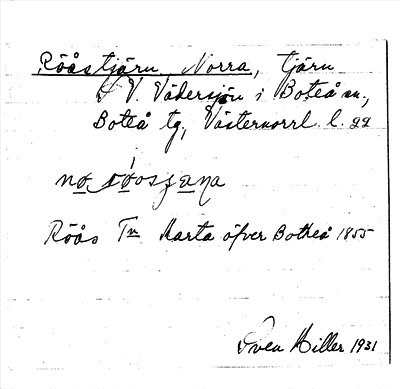 Rååstjärn, Norra, tjärn
S V. Vädersjön i Boteå sn.,
Boteå tg, Västernorrl. l.
Röås Tn Karta öfver Botheå 1855
Sven Hiller 1931